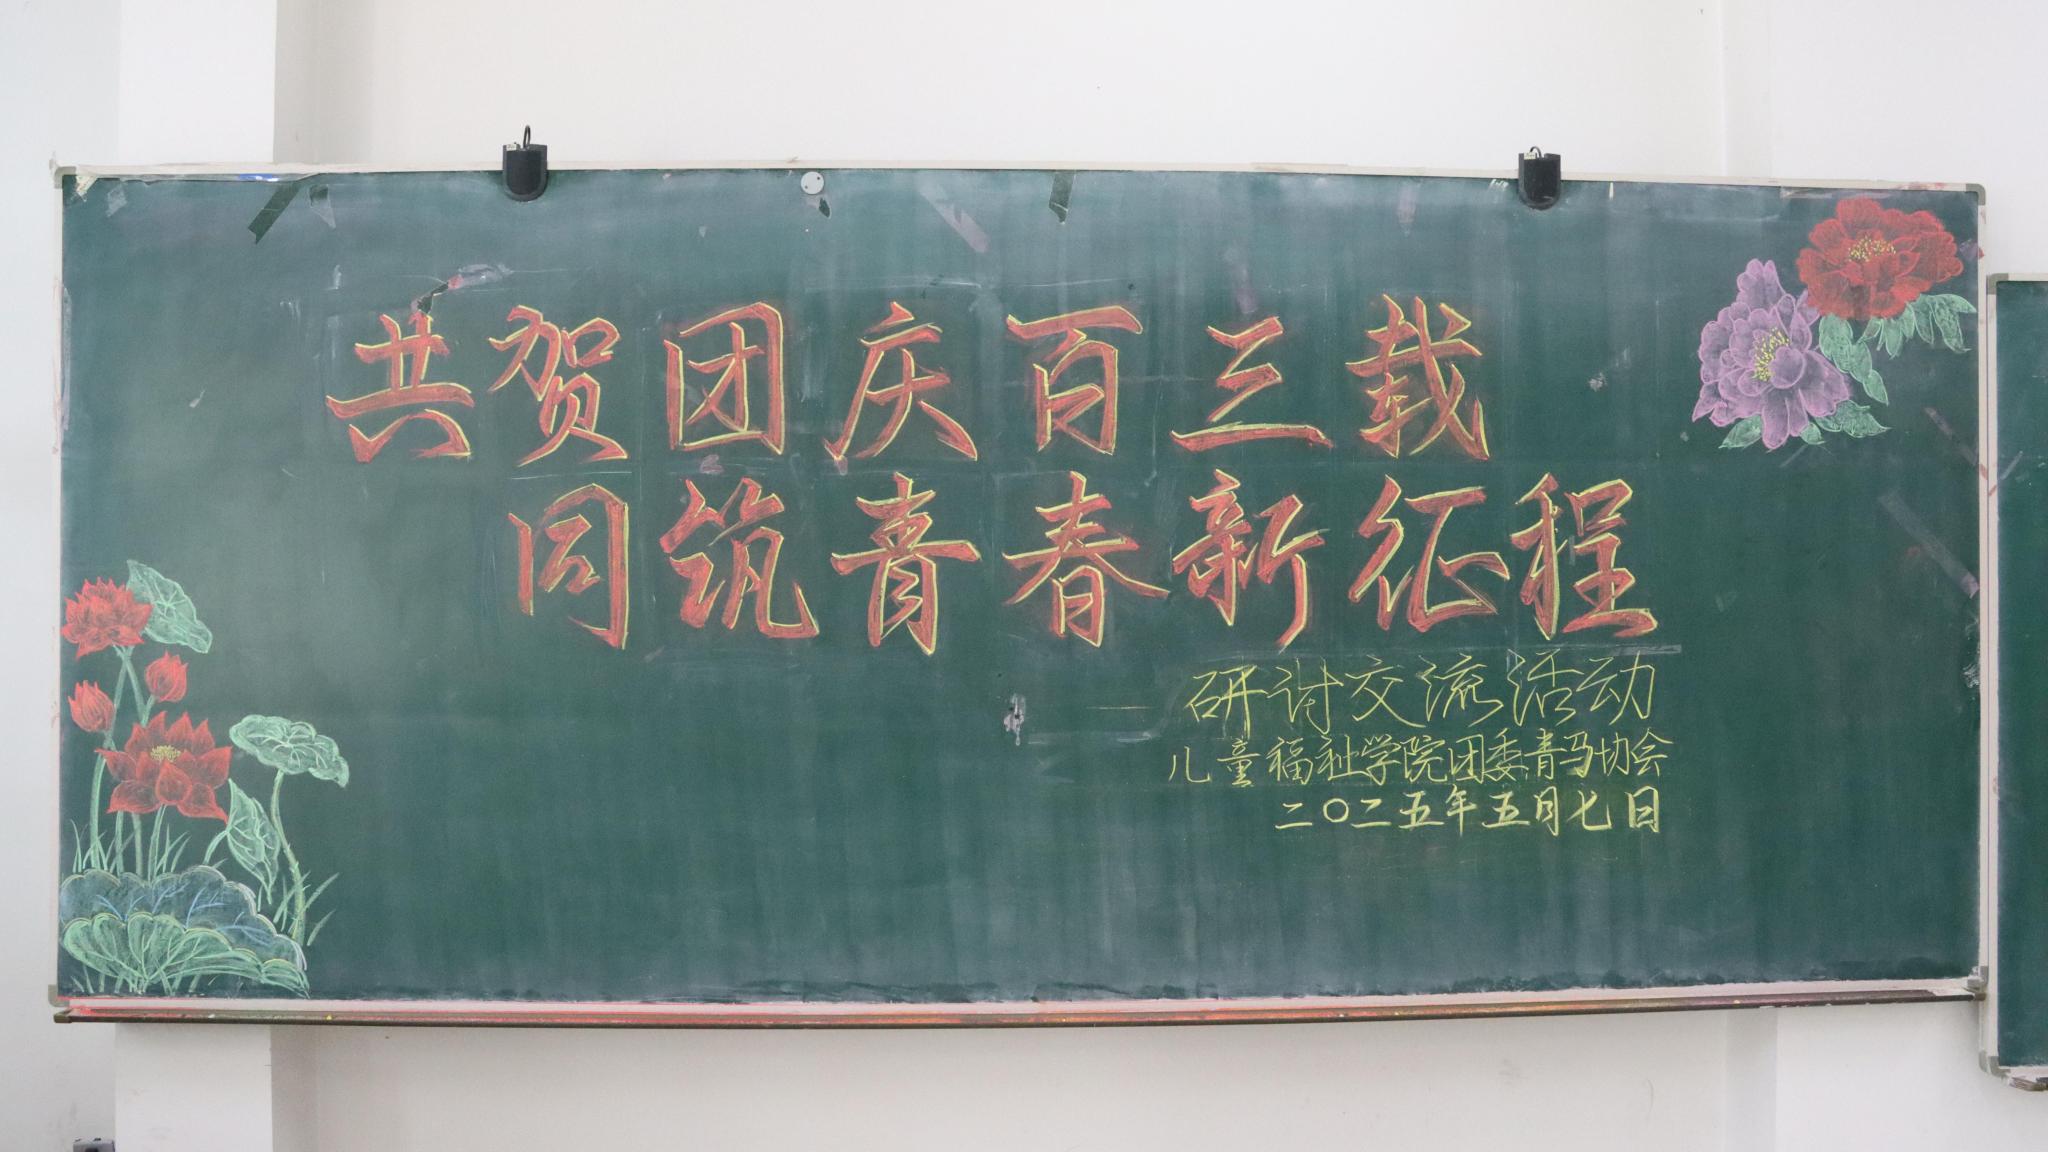 共贺团庆百三载
同筑青春新征程
研讨交流活动
儿童福祉学院团委青马协会
二〇二五年五月七日